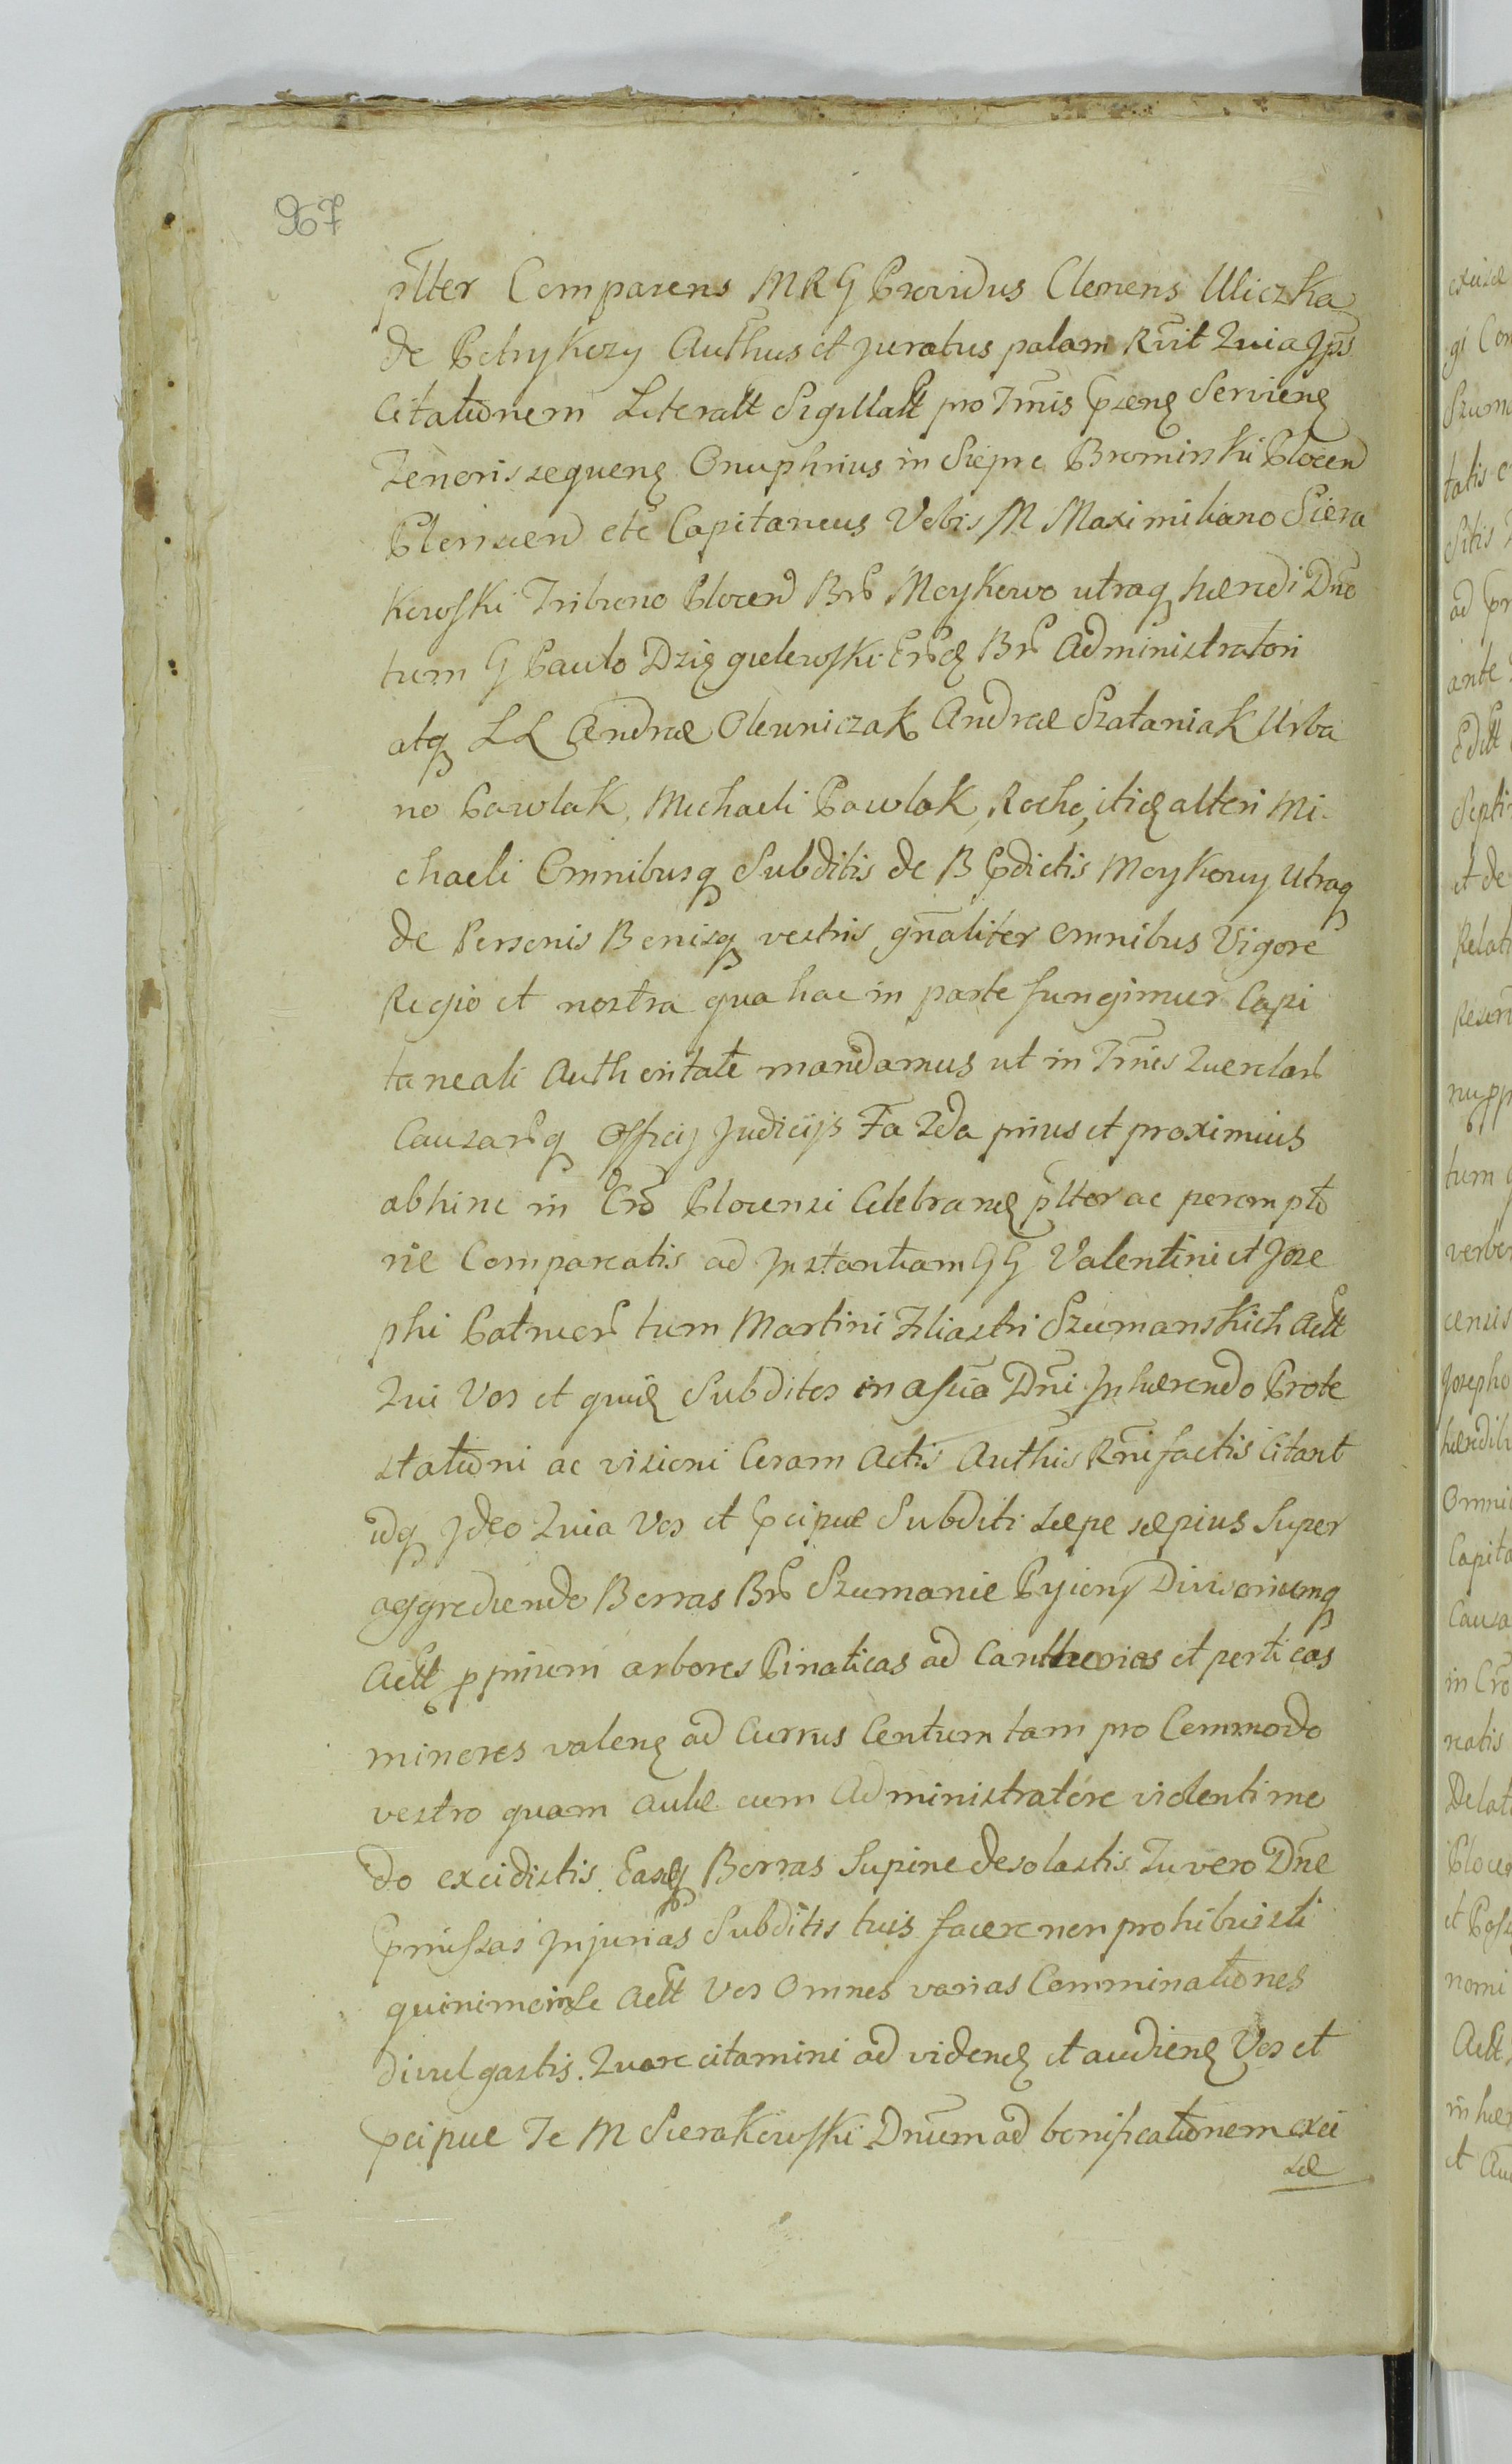 967
pltter Comparens MRG Providus Clemens Uliczka
de Petrykozy Authus et juratus palam Rnit Quia Jps
Citationem Literatt Sigillatt pro Tmis pseng Servieng
Tenoris sequeng Onuphrius in Sieprc Brominski Plocen
Plenscen etc Capitaneus Vobis M Maximiliano Siera
kowski Tribuno Plocen Brb Moykowo utraq hæredi Dno
tum G Paulo Dzięgielewski Brb Administratori
atq LL Andræ Olewniczak Andræ Szataniak Urba
no Pawlak, Michaeli Pawlak, Rocho, itid alteri Mi-
chaeli Omnibusq Subditis de B pdictis Moykowy Utraq
de Personis Bonisq vestris gnaliter omnibus Vigore
Regio et nostra qua hac in parte fungimur Capi
taneali Authoritate mandamus ut in Tmis Querelarb
Causarbq Officij Judicijs Fa 2da prius et proximius
abhinc in Cro Plocensi Celebrand pltter ac perempto
rie Compareatis ad Instantiam GG Valentini et Jose
phi Patruorb tum Martini Filiastri Szumanskich Actt
Qui Vos et quid Subditos in assia Dni Inhærendo Prote
stationi ac visioni Coram Actis Authis Rni factis Citant
idq Ideo Quia Vos et pcipue Subditi sæpe sæpius Super
aggrediendo Borras Brb Szumanie Pyiony Divisoriumq
Actt pprium arbores Pinaticas ad Cantherios et perticas
minores valeng ad Currus Centum tam pro Commodo
vestro quam aulæ cum Administratore violenti mo
do excidistis Easq Borras Supine desolastis Tu vero Dne
pmissas Injurias Subditis tuis facere non prohibuisti
quinimo in se Actt Vos Omnes varias Comminationes
divulgastis. Quare citamini ad videng et audieng Vos et
pcipue Te M Sierakowski Dnum ad bonificationem exci
sæ